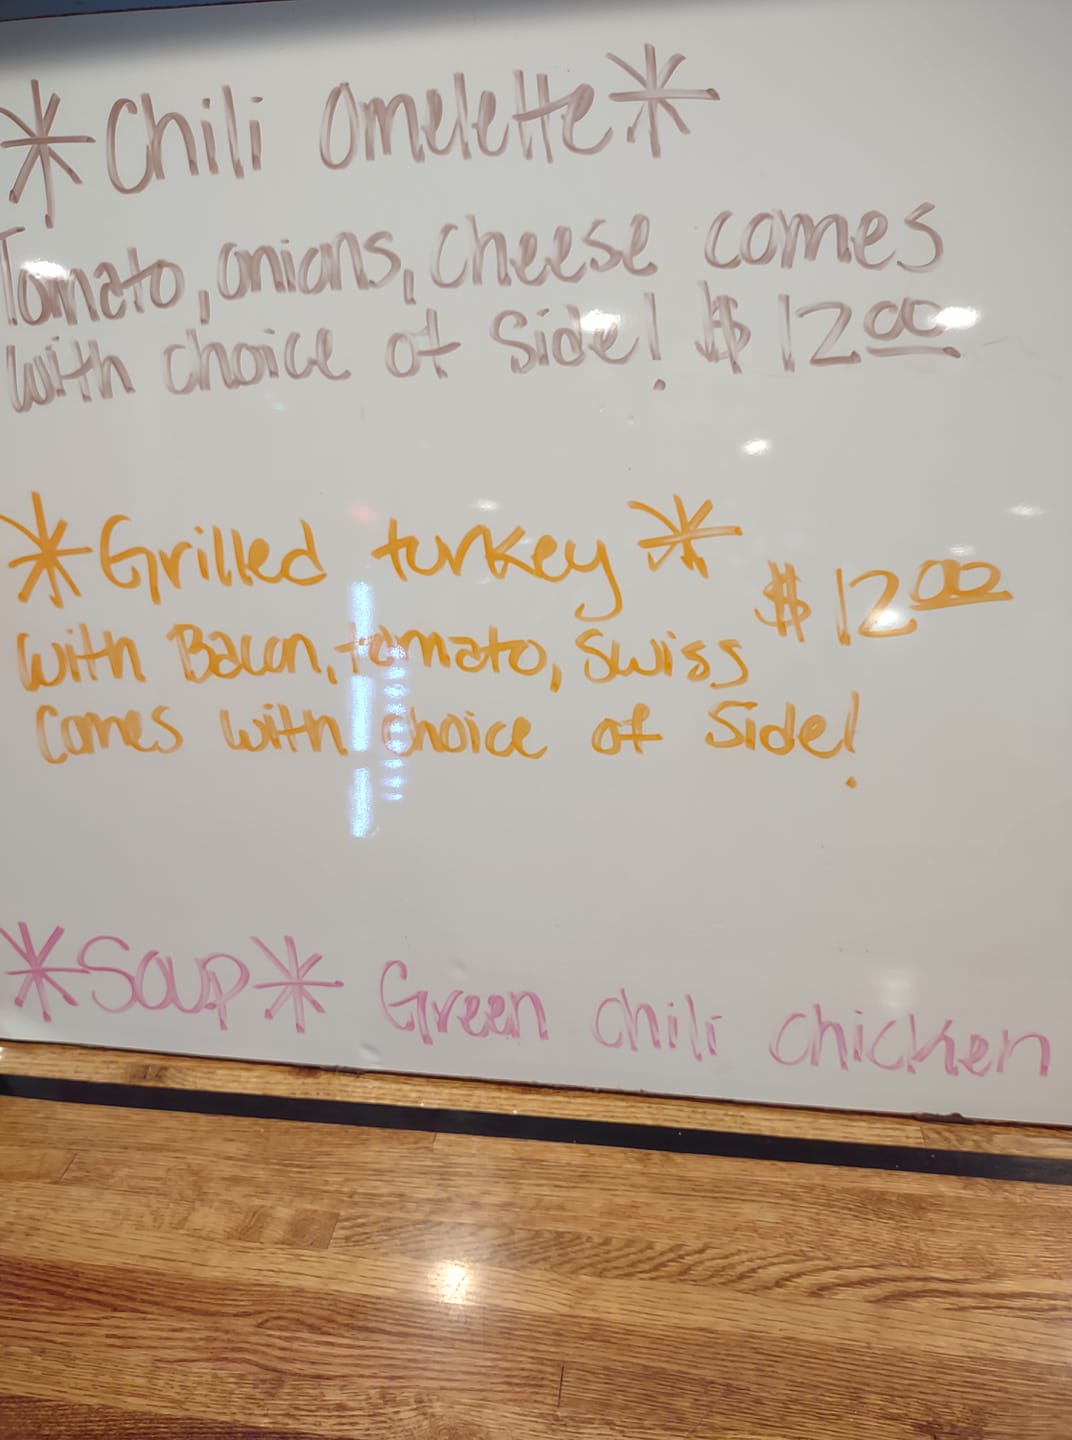 *Chili Omelette*
Tomato, onions, cheese comes
with choice of side! $12.00
*Grilled turkey*
$12.00
with Bacon, tomato, Swiss
comes with choice of side!
*Soup* Green chili chicken